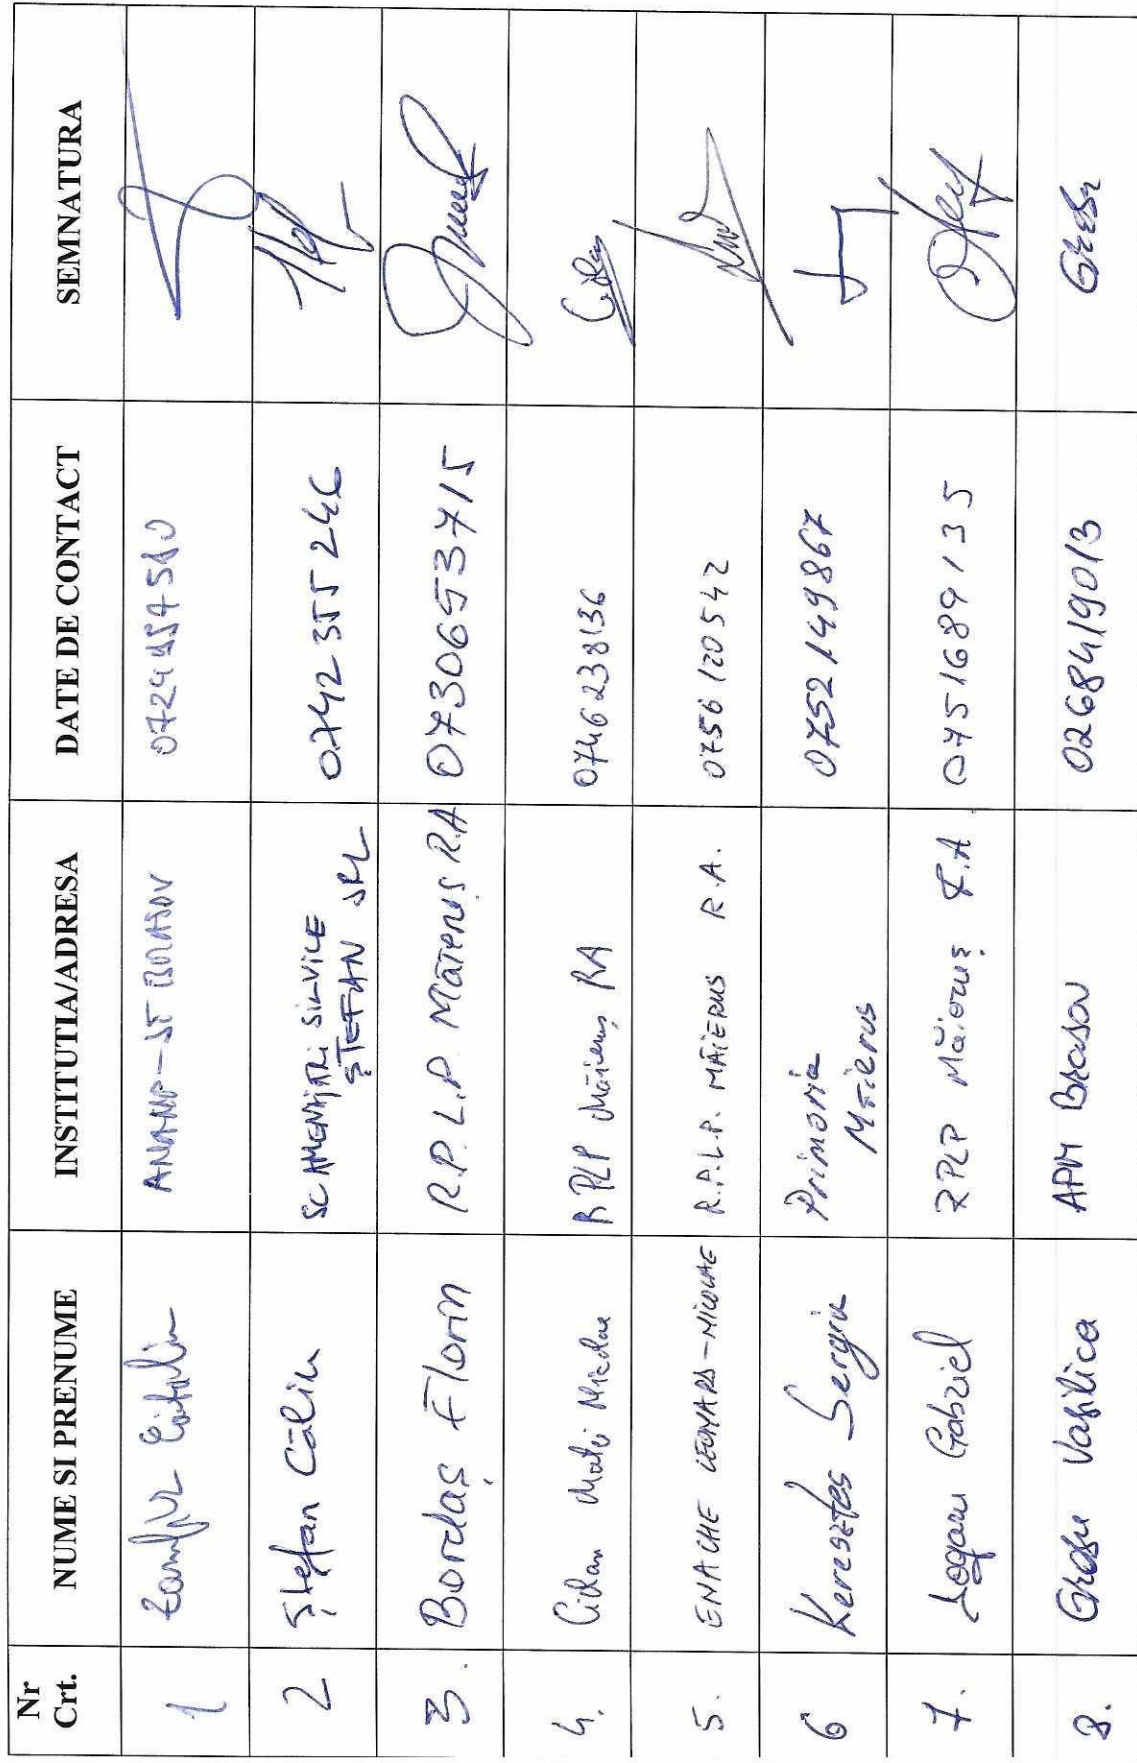 Nr Crt. NUME SI PRENUME INSTITUTIA/ADRESA DATE DE CONTACT SEMNATURA
1 Zamfir Cătălin ANANP-ST BRASOV
2 Ștefan Călin SC AMENAJĂRI SILVICE ȘTEFAN SRL 0742 355 246
3. Bordaș Florin R.P.L.P. Măieruș RA 0730653715
4. Matei Nicolae RPLP Măieruș RA 0746238136
5. ENACHE LEONARD-NICOLAE R.P.L.P. MĂIERUS R.A. 0756120542
6 Keresztes Sergiu Primăria Măierus 0752149867
7. Gabriel RPLP Măieruș R.A 0751689135
8. Grosu Vasilica APM Brasov 0268419013 Grosu